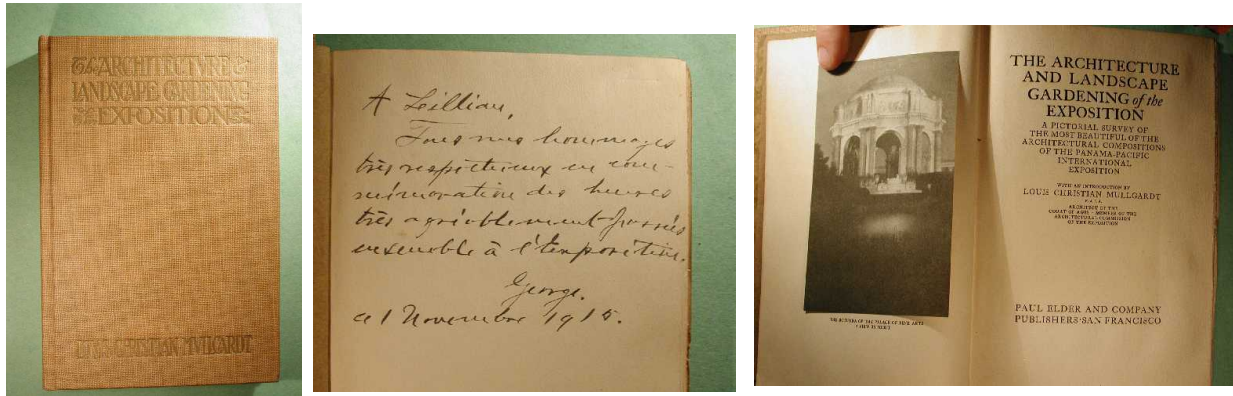 The ARCHITECTVRE &
LANDSCAPE GARDENING
of the EXPOSITION
LOUIS CHRISTIAN MVLLGARDT
A Lillian,
Tous mes hommages
très respectueux en com-
mémoration des heures
très agréablement passées
ensemble à l'exposition.
George.
1 Novembre 1915.
THE ROTUNDA OF THE PALACE OF FINE ARTS
THE ARCHITECTURE
AND LANDSCAPE
GARDENING of the
EXPOSITION
A PICTORIAL SURVEY OF
THE MOST BEAUTIFUL OF THE
ARCHITECTURAL COMPOSITIONS
OF THE PANAMA-PACIFIC
INTERNATIONAL
EXPOSITION
WITH AN INTRODUCTION BY
LOUIS CHRISTIAN MULLGARDT
F.A.I.A.
ARCHITECT OF THE
COURT OF AGES · MEMBER OF THE
ARCHITECTURAL COMMISSION
OF THE EXPOSITION
PAUL ELDER AND COMPANY
PUBLISHERS·SAN FRANCISCO